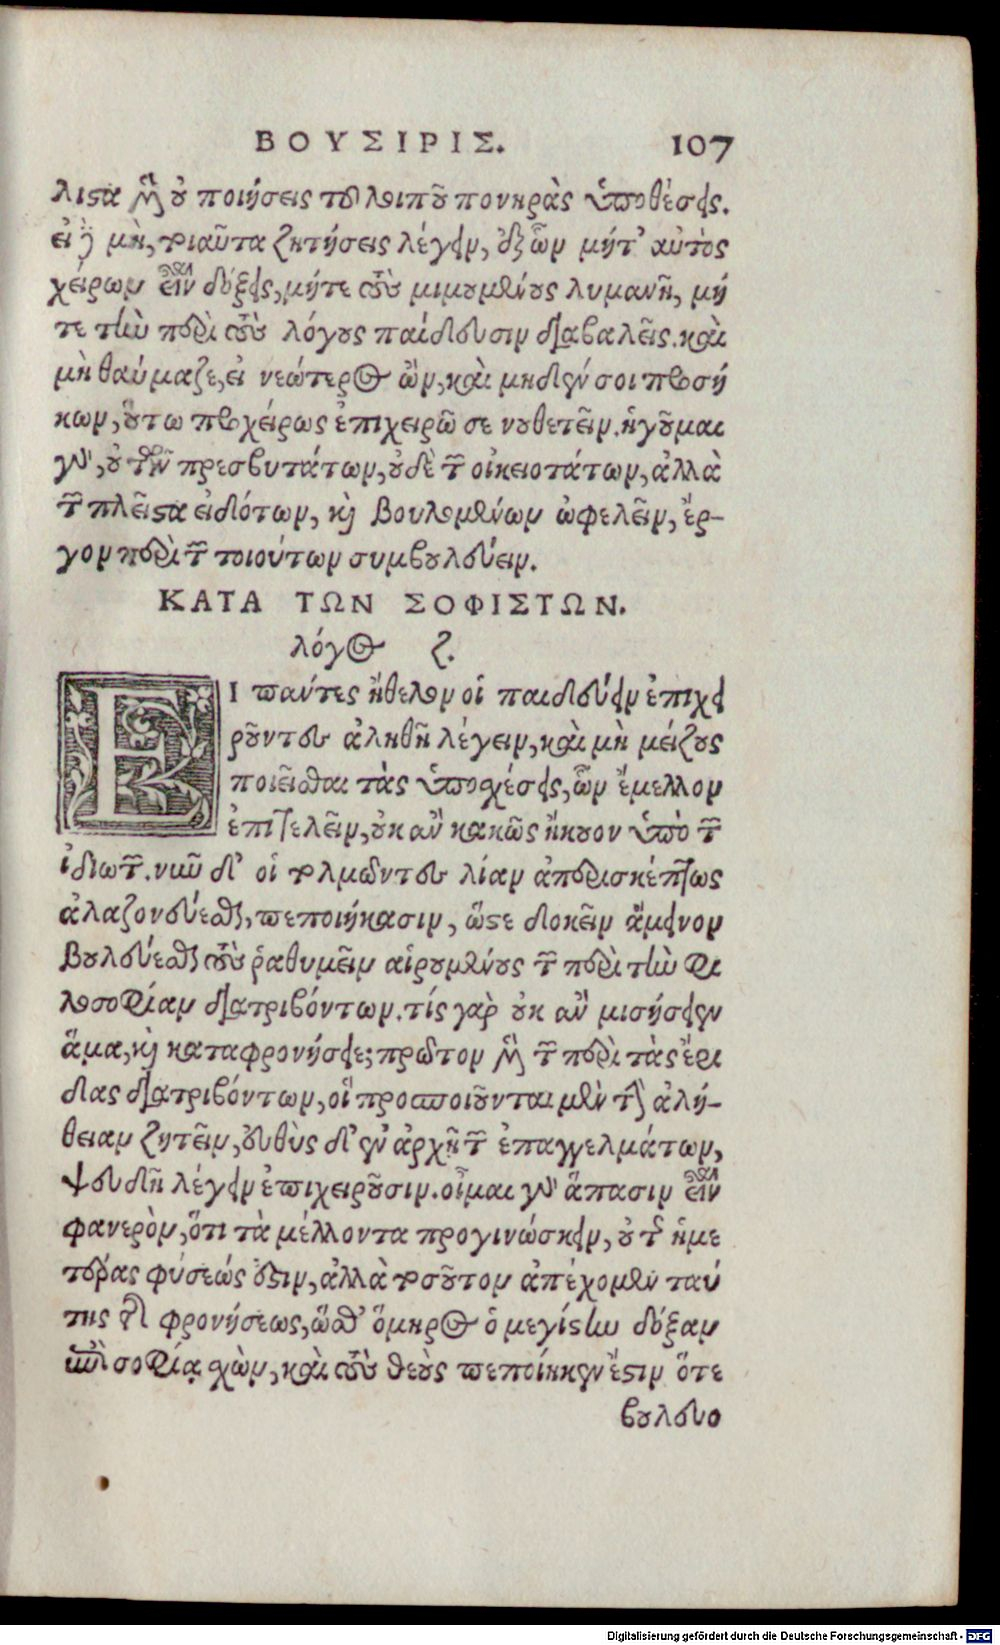 ΒΟΥΣΙΡΙΣ. 107
λιϛα μὲν οὐ ποιήσεις τοῦ λοιποῦ πονηρὰς ὑποθέσεις.
εἰ δὲ μὴ, τοιαῦτα ζητήσεις λέγειν, ἐξ ὧν μήτ' αὐτὸς
χείρων εἶναι δόξεις, μήτε τοὺς μιμουμένους λυμανῇ, μή
τε τὴν περὶ τοὺς λόγους παίδευσιν διαβαλεῖς. καὶ
μὴ θαύμαζε, εἰ νεώτερος ὢν, καὶ μηδέν σοι προσή
κων, οὕτω προχείρως ἐπιχειρῶ σε νουθετεῖν. ἡγοῦμαι
γὰρ, οὐ τῶν πρεσβυτάτων, οὐδὲ τῶν οἰκειοτάτων, ἀλλὰ
τῶν πλεῖϛα εἰδότων, καὶ βουλομένων ὠφελεῖν, ἔρ-
γον περὶ τῶν τοιούτων συμβουλεύειν.
ΚΑΤΑ ΤΩΝ ΣΟΦΙΣΤΩΝ.
λόγος ζ.
ΕΙ πάντες ἤθελον οἱ παιδεύειν ἐπιχει
ροῦντες ἀληθῆ λέγειν, καὶ μὴ μείζους
ποιεῖσθαι τὰς ὑποσχέσεις, ὧν ἔμελλον
ἐπιτελεῖν, οὐκ ἂν κακῶς ἤκουον ὑπὸ τῶν
ἰδιωτῶν. νῦν δ' οἱ τολμῶντες λίαν ἀπερισκέπτως
ἀλαζονεύεσθαι, πεποιήκασιν, ὥϛε δοκεῖν ἄμεινον
βουλεύεσθαι τοὺς ῥαθυμεῖν αἱρουμένους τῶν περὶ τὴν φι
λοσοφίαν διατριβόντων. τίς γὰρ οὐκ ἂν μισήσειεν
ἅμα, καὶ καταφρονήσειε; πρῶτον μὲν τῶν περὶ τὰς ἔρι
δας διατριβόντων, οἳ προσποιοῦνται μὲν τὴν ἀλή-
θειαν ζητεῖν, εὐθὺς δ' ἐν ἀρχῇ τῶν ἐπαγγελμάτων,
ψευδῆ λέγειν ἐπιχειροῦσιν. οἶμαι γὰρ ἅπασιν εἶναι
φανερὸν, ὅτι τὰ μέλλοντα προγινώσκειν, οὐ τῆς ἡμε
τέρας φύσεώς ἐϛιν, ἀλλὰ τοσοῦτον ἀπέχομεν ταύ
της τῆς φρονήσεως, ὥσθ' ὅμηρος ὁ μεγίϛην δόξαν
ἐπὶ σοφίᾳ σχὼν, καὶ τοὺς θεοὺς πεποίηκεν ἔϛιν ὅτε
βουλευο
Digitalisierung gefördert durch die Deutsche Forschungsgemeinschaft - DFG